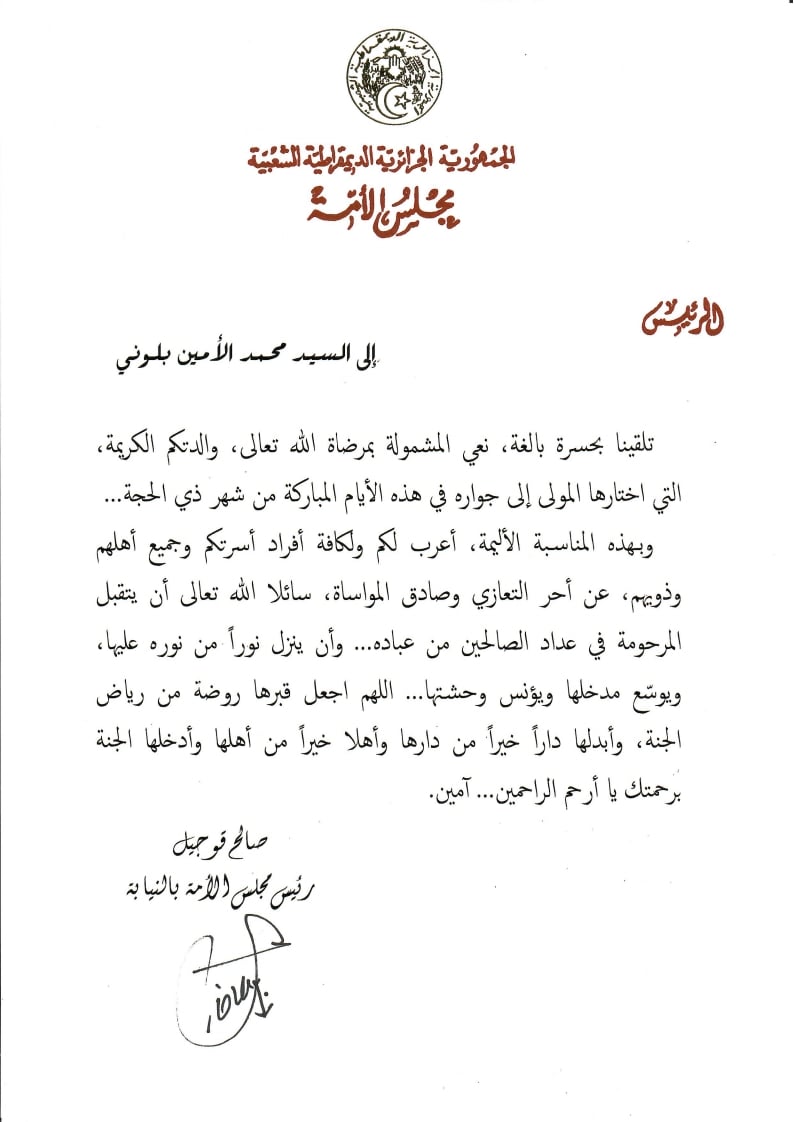 الجمهورية الجزائرية الديمقراطية الشعبية
الجمهوريّة الجزائريّة الديمقراطيّة الشعبيّة
مجلس الأمّة
الرئيس
إلى السيد محمد الأمين بلوني
تلقينا بحسرة بالغة، نعي المشمولة بمرضاة الله تعالى، والدتكم الكريمة،
التي اختارها المولى إلى جواره في هذه الأيام المباركة من شهر ذي الحجة...
وبهذه المناسبة الأليمة، أعرب لكم ولكافة أفراد أسرتكم وجميع أهلهم
وذويهم، عن أحر التعازي وصادق المواساة، سائلا الله تعالى أن يتقبل
المرحومة في عداد الصالحين من عباده... وأن ينزل نوراً من نوره عليها،
ويوسّع مدخلها ويؤنس وحشتها... اللهم اجعل قبرها روضة من رياض
الجنة، وأبدلها داراً خيراً من دارها وأهلا خيراً من أهلها وأدخلها الجنة
برحمتك يا أرحم الراحمين... آمين.
صالح قوجيل
رئيس مجلس الأمة بالنيابة